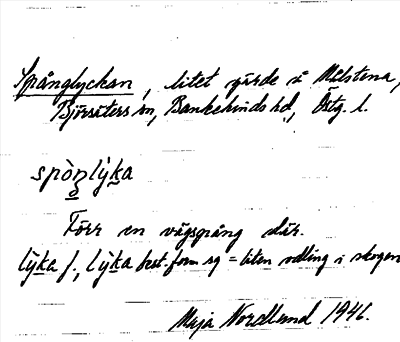 Språnglyckan, litet gärde i Melstena,
Björsäters sn, Bankekinds hd, Östg. l.
spòŋlỳka
Förr en vägsprång där.
lỳka f., lỳka best. form sg = liten odling i skogen
Maja Nordlund 1946.